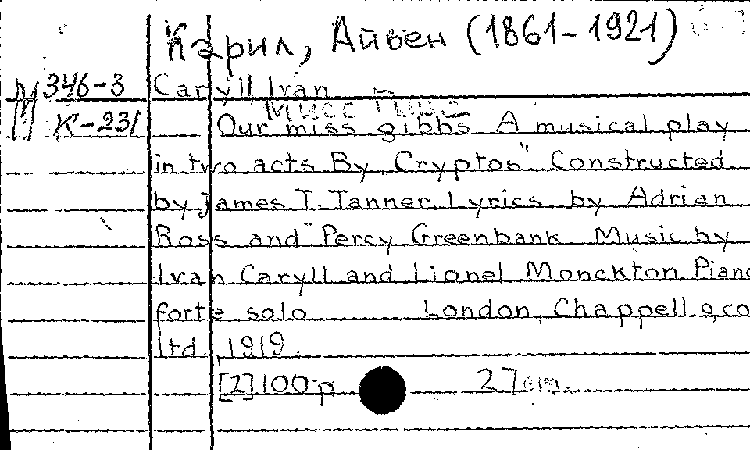 Кэрил, Айвен (1861-1921)
М 346-3 Caryll Ivan
К-231 Our miss gibbs A musical play
in two acts By "Cryptos" Constructed
by James T. Tanner. Lyrics by Adrian
Ross and Percy Greenbank Music by
Ivan Caryll and Lionel Monckton Piano
forte solo London, Chappell & co
ltd 1919
[2] 100 p 27 cm.